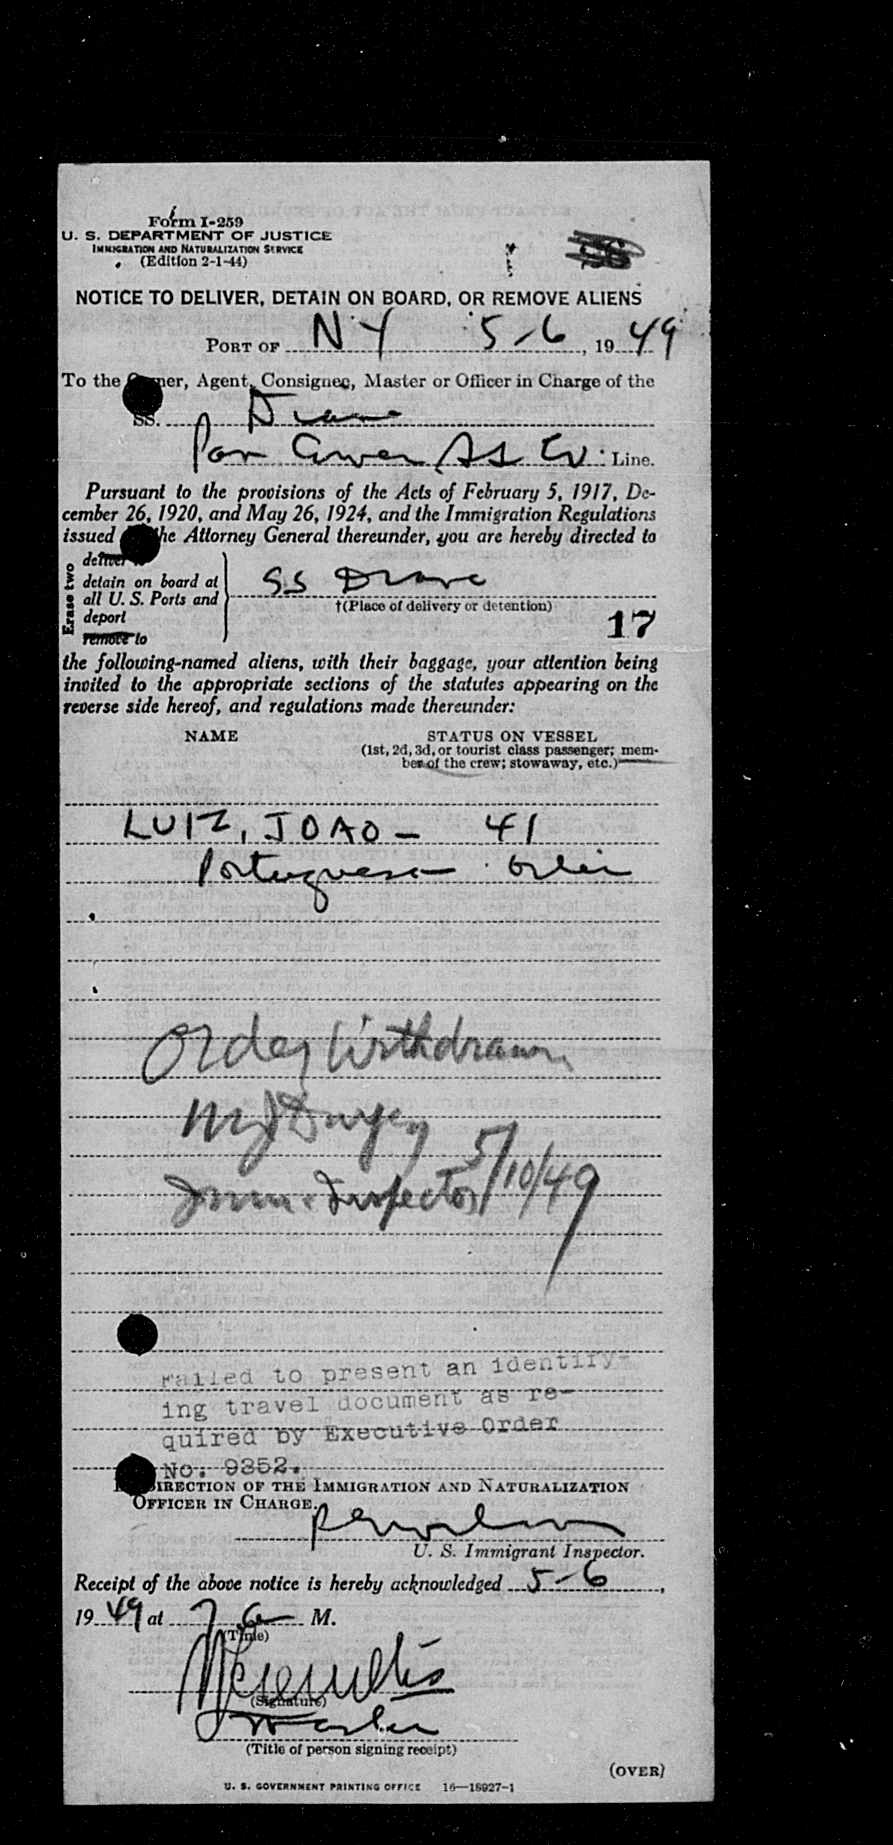 Form I-259
U. S. DEPARTMENT OF JUSTICE
IMMIGRATION AND NATURALIZATION SERVICE
(Edition 2-1-44)
56
NOTICE TO DELIVER, DETAIN ON BOARD, OR REMOVE ALIENS
PORT OF NY 5-6, 1949
To the Owner, Agent, Consignee, Master or Officer in Charge of the
SS. Diane
Line.
Pursuant to the provisions of the Acts of February 5, 1917, De-
cember 26, 1920, and May 26, 1924, and the Immigration Regulations
issued the Attorney General thereunder, you are hereby directed to
Erase two
deliver to
detain on board at
all U. S. Ports and
deport
remove to
SS Diane
†(Place of delivery or detention)
17
the following-named aliens, with their baggage, your attention being
invited to the appropriate sections of the statutes appearing on the
reverse side hereof, and regulations made thereunder:
NAME STATUS ON VESSEL
(1st, 2d, 3d, or tourist class passenger; mem-
ber of the crew; stowaway, etc.)
LUIZ, JOAO - 41
Portuguese Oiler
Order Withdrawn
5/10/49
Imm. Inspector
Failed to present an identify-
ing travel document as re-
quired by Executive Order
No. 9352.
DIRECTION OF THE IMMIGRATION AND NATURALIZATION
OFFICER IN CHARGE.
U. S. Immigrant Inspector.
Receipt of the above notice is hereby acknowledged 5-6,
1949 at 7 a M.
(Time)
(Signature)
Master
(Title of person signing receipt)
(OVER)
U. S. GOVERNMENT PRINTING OFFICE 16—18927-1